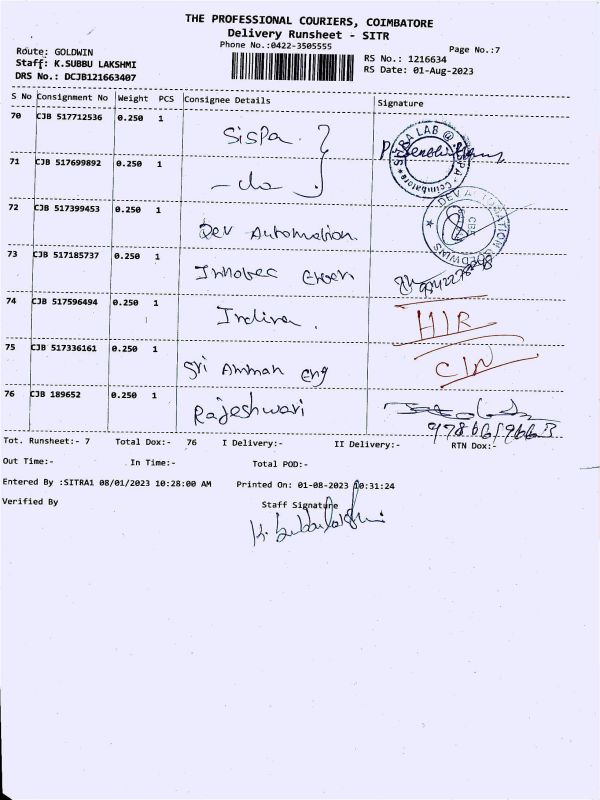 THE PROFESSIONAL COURIERS, COIMBATORE
Delivery Runsheet - SITR
Phone No.:0422-3505555
Page No.:7
Route: GOLDWIN
Staff: K.SUBBU LAKSHMI
DRS No.: DCJB121663407
RS No.: 1216634
RS Date: 01-Aug-2023
S No Consignment No Weight PCS Consignee Details Signature
70 CJB 517712536 0.250 1 Sispa
71 CJB 517699892 0.250 1 - do
72 CJB 517399453 0.250 1 Dev Automation
73 CJB 517185737 0.250 1 Green
74 CJB 517596494 0.250 1 Indira. HIR
75 CJB 517336161 0.250 1 Sri Amman eng
76 CJB 189652 0.250 1 Rajeshwari
Tot. Runsheet:- 7 Total Dox:- 76 I Delivery:- II Delivery:- RTN Dox:-
Out Time:- In Time:- Total POD:-
Entered By :SITRA1 08/01/2023 10:28:00 AM Printed On: 01-08-2023 10:31:24
Verified By Staff Signature
K. Subbulakshmi